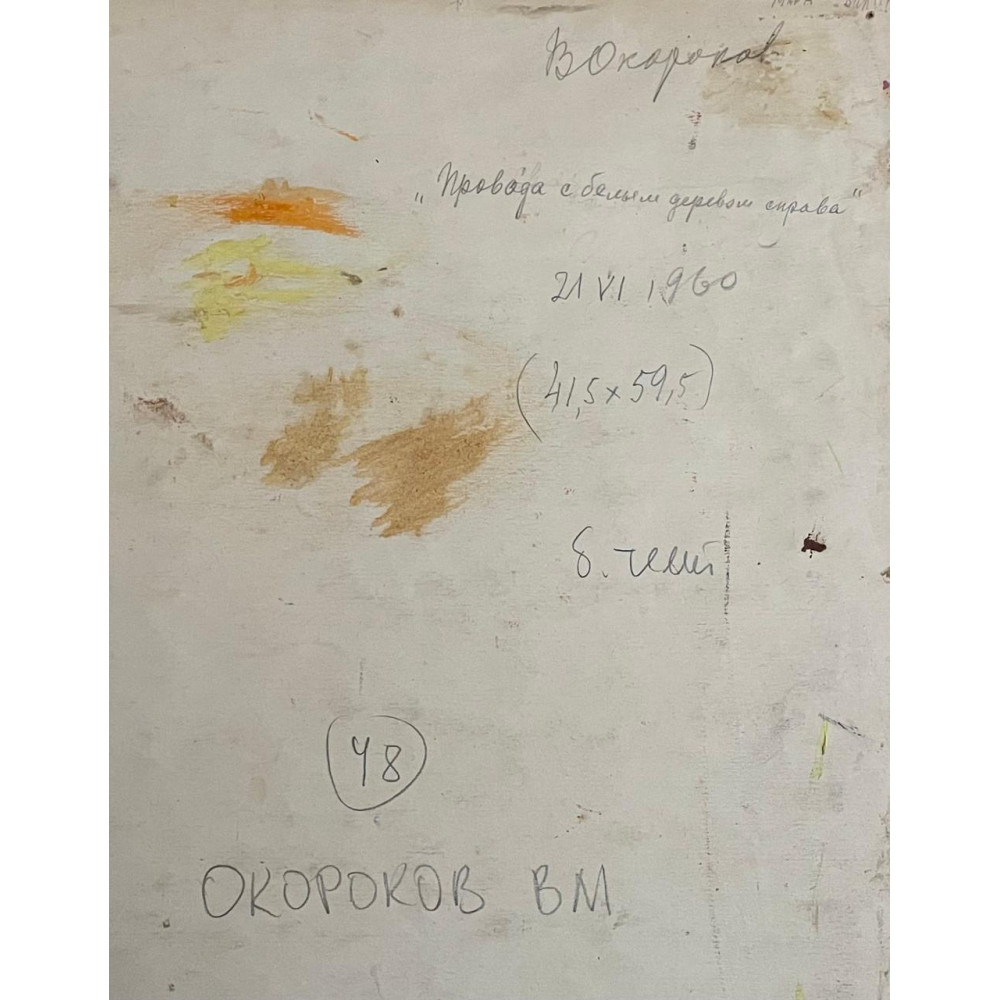 В Окороков
„Провода с белым деревом справа"
21 VI 1960
(41,5 x 59,5)
б. темп
48
ОКОРОКОВ ВМ